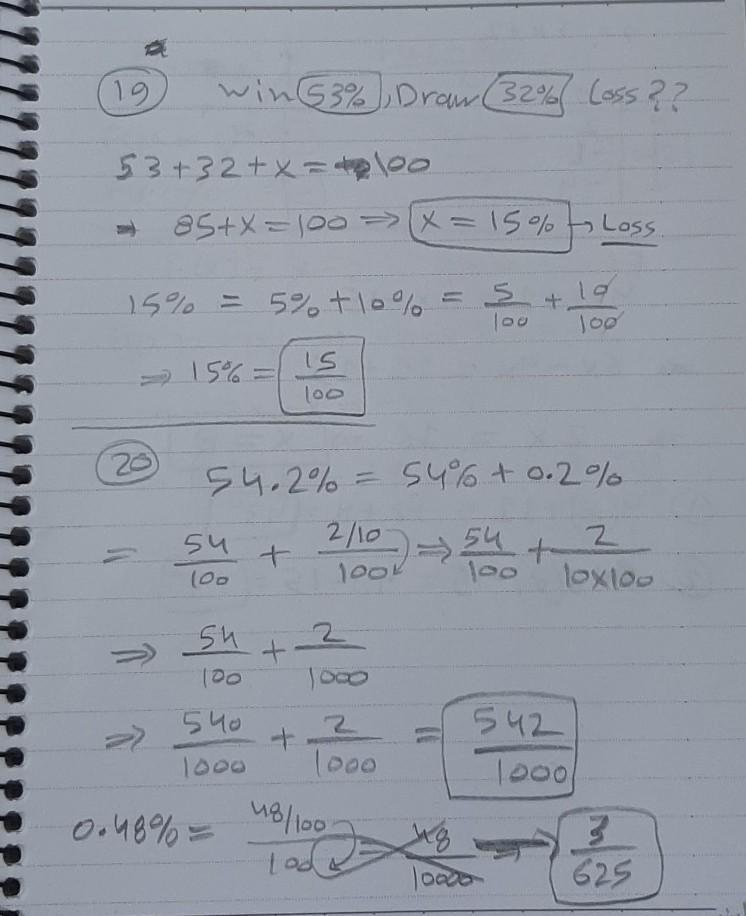 19 Win 53%, Draw 32% Loss??
53+32+x=100
⇒ 85+x=100 ⇒ x = 15% → Loss
15% = 5%+10% = 5/100 + 10/100
⇒ 15% = 15/100
20 54.2% = 54% + 0.2%
= 54/100 + (2/10)/100 ⇒ 54/100 + 2/(10×100)
⇒ 54/100 + 2/1000
⇒ 540/1000 + 2/1000 = 542/1000
0.48% = (48/100)/100 = 48/10000 ⇒ 3/625